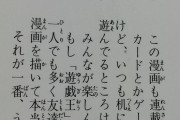 この漫画も連載
カードとかゲー
けど、いつも机に
遊んでるところけ
みんなが楽しん
もし「遊戯王」
一人でも多く友達
漫画を描いて本当
それが一番、う